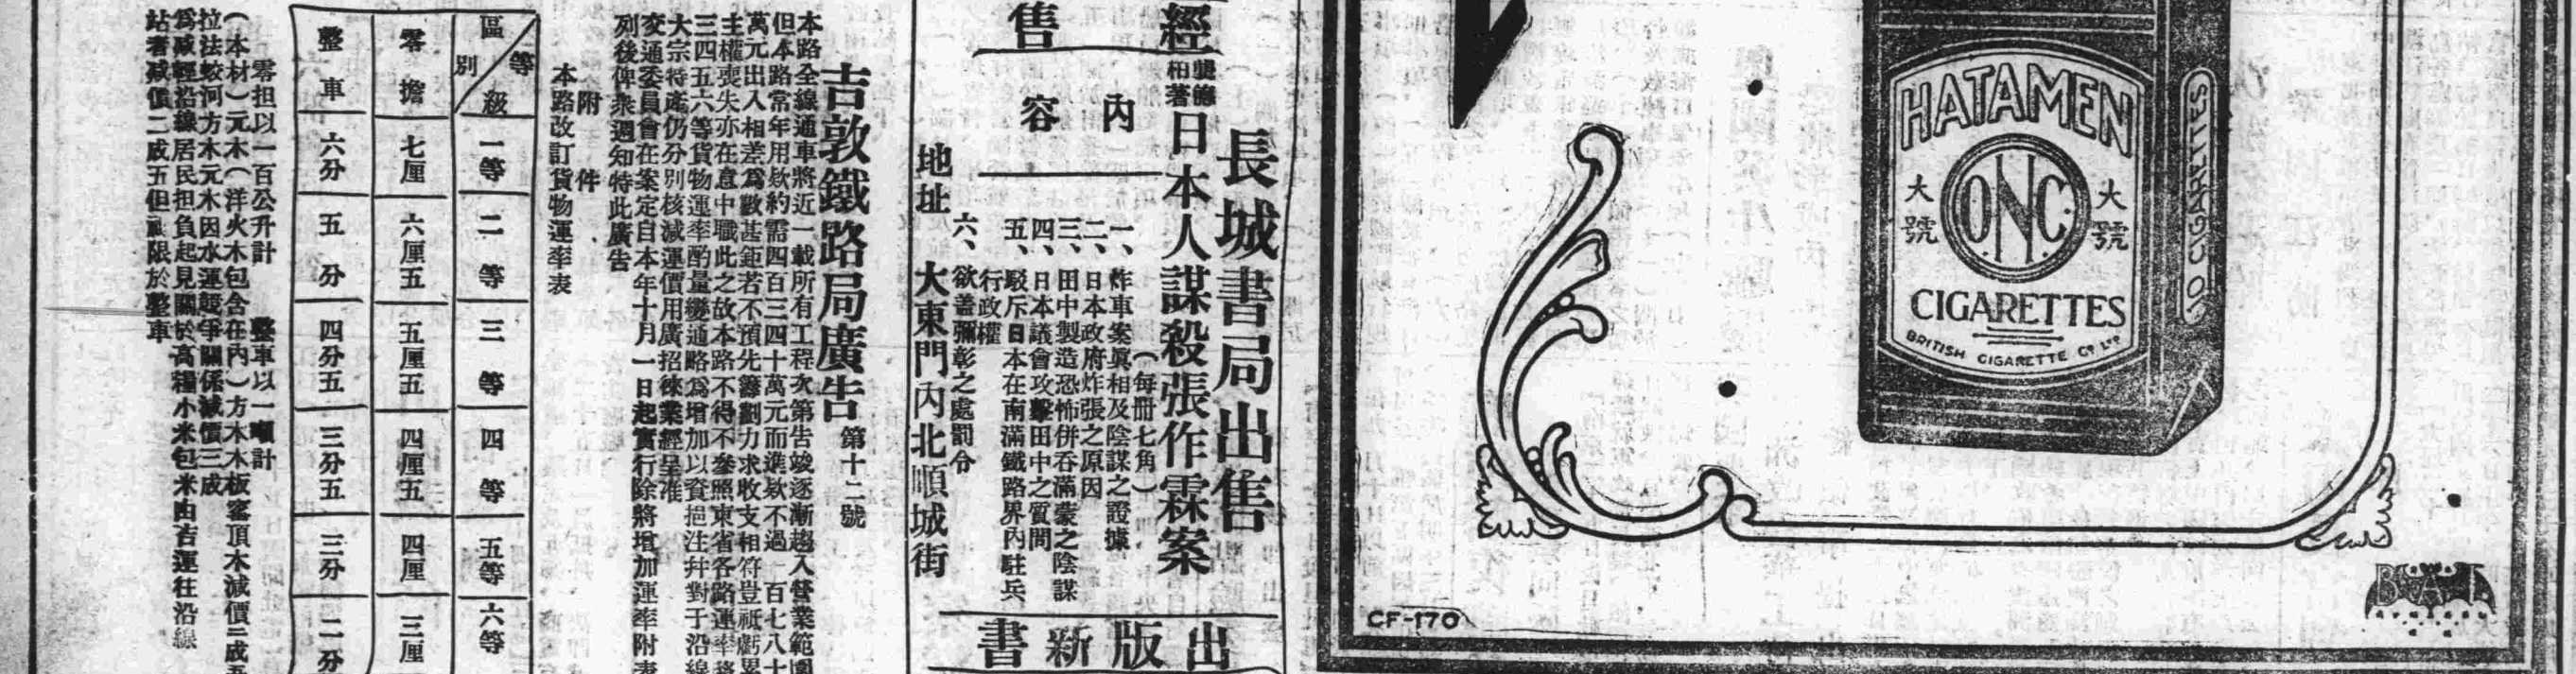 HATAMEN
大號
ONC
大號
CIGARETTES
BRITISH CIGARETTE CO LTD
10 CIGARETTES
B.A.T
CF-170
經售
長城書局出售
龔德柏著
日本人謀殺張作霖案
(每冊七角)
內容
一、炸車案眞相及陰謀之證據
二、日本政府炸張之原因
三、田中製造恐怖併吞滿蒙之陰謀
四、日本議會攻擊田中之質問
五、駁斥日本在南滿鐵路界內駐兵
行政權
六、欲蓋彌彰之處罰令
地址
大東門內北順城街
出版新書
吉敦鐵路局廣告
第十二號
本路全線通車將近一載所有工程次第告竣逐漸趨入營業範圍
但本路常年用欵約需四百三四十萬元而進欵不過一百七八十
萬元出入相差爲數甚鉅若不預先籌劃力求收支相符豈祇虧累
主權喪失亦在意中職此之故本路不得不參照東省各路運率將
三四五六等貨物運率酌量變通略爲增加以資挹注幷對于沿線
大宗特產仍分別核減運價用廣招徠業經呈准
交通委員會在案定自本年十月一日起實行除將增加運率附表
列後俾衆週知特此廣告
附件
本路改訂貨物運率表
等級
區別
一等
二等
三等
四等
五等
六等
零擔
七厘
六厘五
五厘五
四厘五
四厘
三厘
整車
六分
五分
四分五
三分五
三分
二分
零担以一百公升計
整車以一噸計
(本材)元木(洋火木包含在內)方木木板窰頂木減價二成五
拉法蛟河方木元木因水運競爭關係減價三成
爲減輕沿線居民担負起見關於高糧小米包米由吉運往沿線
站者減價二成五但祇限於整車